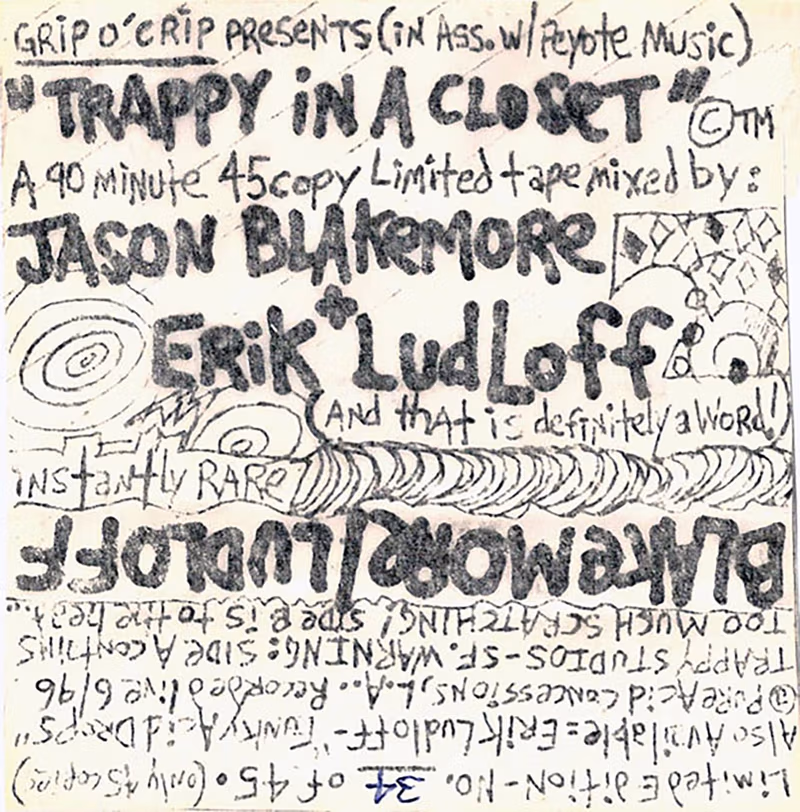 GRIP O'CRIP PRESENTS (iN ASS. W/ Peyote Music)
"TRAPPY iN A CLOSET" ©TM
A 90 minute 45 copy Limited tape mixed by:
JASON BLAKEMORE
+
ERiK LudLoff
(AND that is definitely a WORD!)
iNstantly RARE
Limited Edition-No. 34 of 45. (only 45 copies)
Also Available = Erik Ludloff - "Funky Acid Drops"
@ Pure Acid Concessions, L.A.. Recorded live 6/96
TRAPPY STUDIOS-SF. WARNING: SIDE A contains
TOO MUCH SCRATCHING! SIDE B is to the head..
BLAKEMORE/LUDLOFF